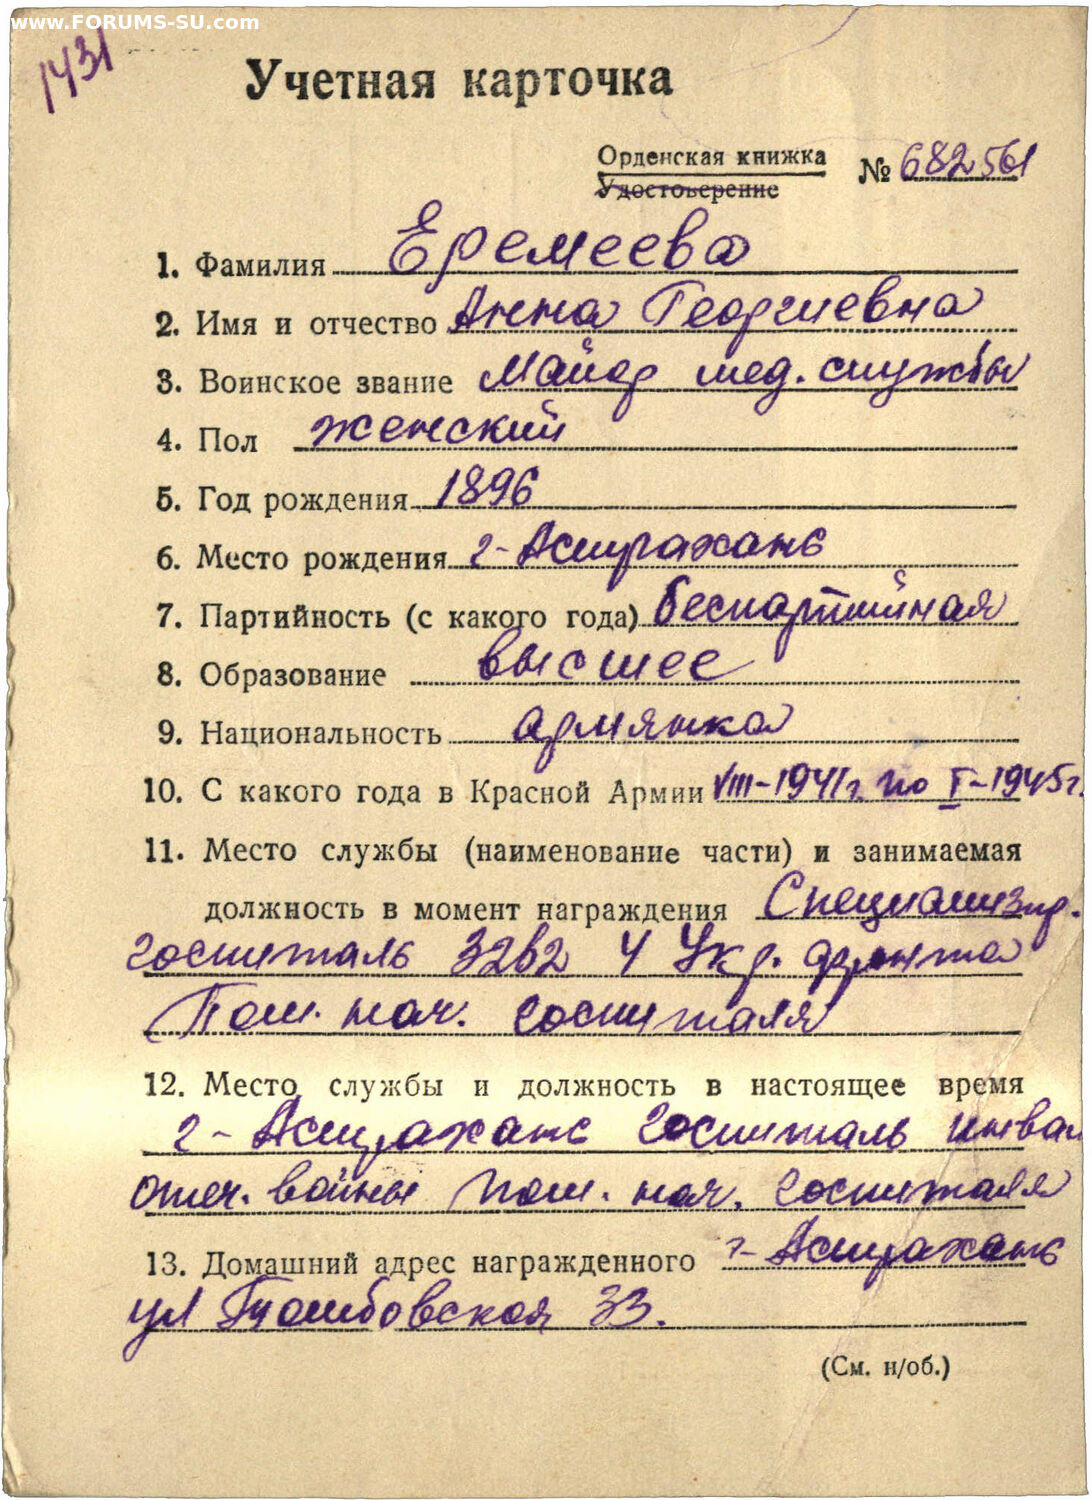 www.FORUMS-SU.com
1431
Учетная карточка
Орденская книжка № 682561
Удостоверение
1. Фамилия Еремеева
2. Имя и отчество Анна Георгиевна
3. Воинское звание Майор мед. службы
4. Пол женский
5. Год рождения 1896
6. Место рождения г-Астрахань
7. Партийность (с какого года) беспартийная
8. Образование высшее
9. Национальность армянка
10. С какого года в Красной Армии VIII-1941г. по X-1945г.
11. Место службы (наименование части) и занимаемая
должность в момент награждения Специализир.
госпиталь 3262 4 Укр. фронта
Пом. нач. госпиталя
12. Место службы и должность в настоящее время
г-Астрахань Госпиталь инвал
отеч. войны Пом. нач. госпиталя
13. Домашний адрес награжденного г-Астрахань
ул Тамбовская 33.
(См. н/об.)